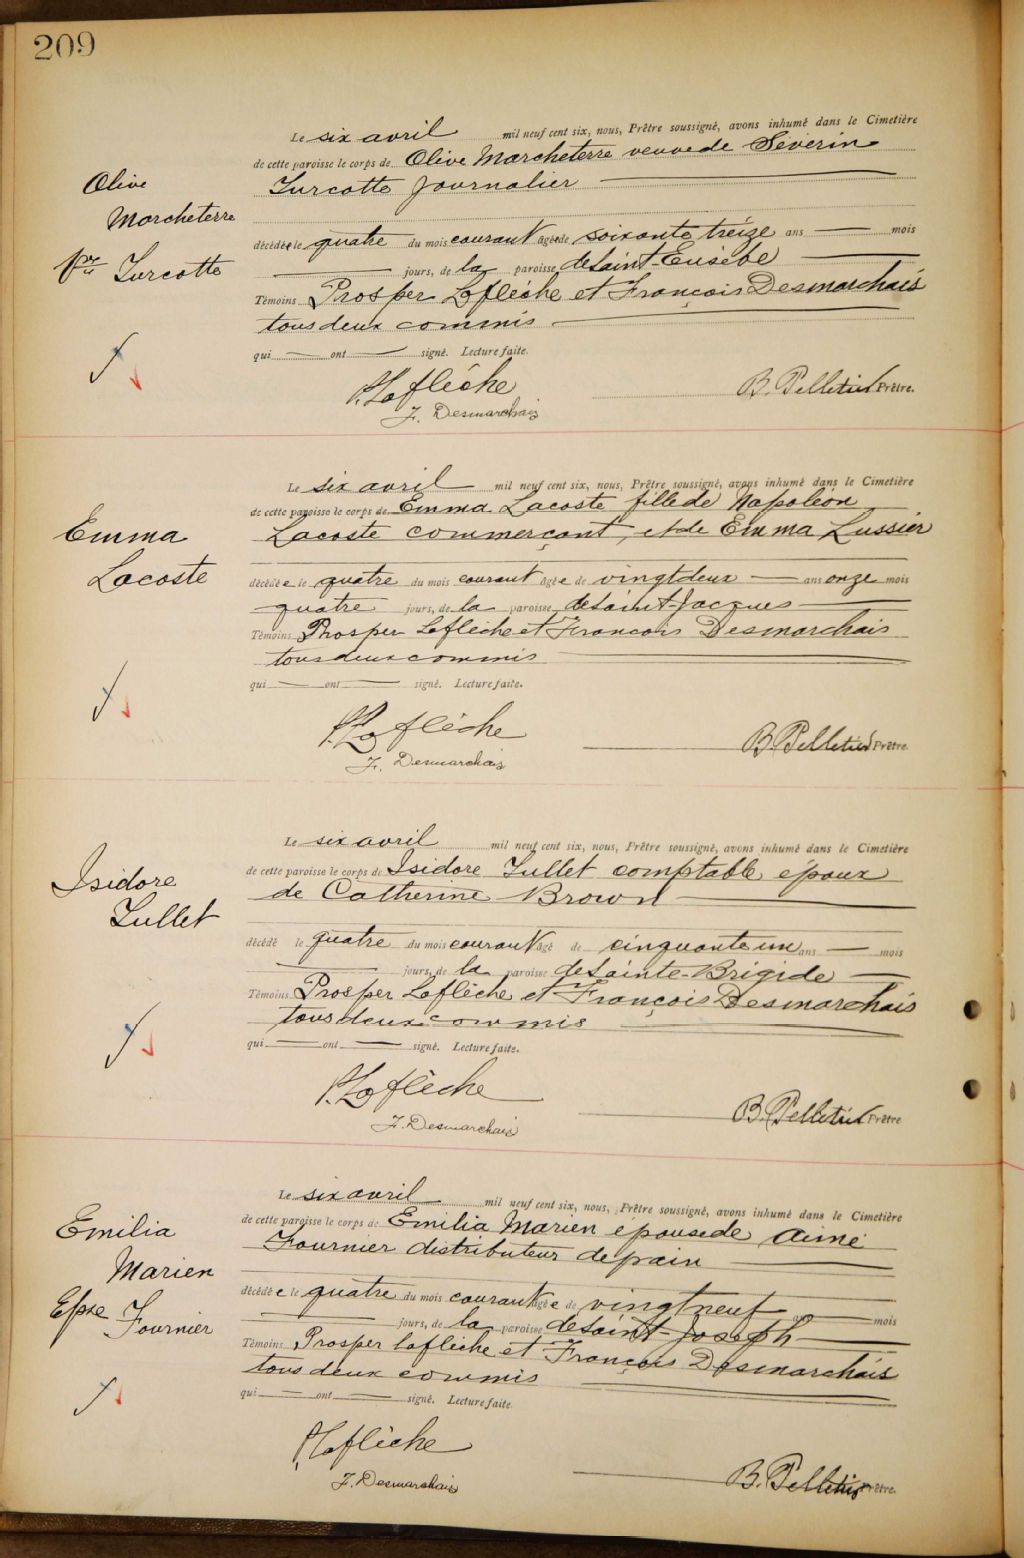 209
Le six avril mil neuf cent six, nous, Prêtre soussigné, avons inhumé dans le Cimetière
de cette paroisse le corps de Olive Marcheterre veuve de Séverin
Turcotte journalier
Olive
Marcheterre
Vve Turcotte
décédée le quatre du mois courant âgée de soixante treize ans mois
jours, de la paroisse de Saint-Eusèbe
Témoins Prosper Laflèche et François Desmarchais
tous deux commis
qui ont signé. Lecture faite.
P. Laflèche
F. Desmarchais
B. Pelletier Prêtre.
Le six avril mil neuf cent six, nous, Prêtre soussigné, avons inhumé dans le Cimetière
de cette paroisse le corps de Emma Lacoste fille de Napoléon
Lacoste commerçant, et de Emma Lussier
Emma
Lacoste
décédée le quatre du mois courant âgée de vingt deux ans onze mois
quatre jours, de la paroisse de Saint-Jacques
Témoins Prosper Laflèche et François Desmarchais
tous deux commis
qui ont signé. Lecture faite.
P. Laflèche
F. Desmarchais
B. Pelletier Prêtre.
Le six avril mil neuf cent six, nous, Prêtre soussigné, avons inhumé dans le Cimetière
de cette paroisse le corps de Isidore Tullet comptable époux
de Catherine Brown
Isidore
Tullet
décédé le quatre du mois courant âgé de cinquante un ans mois
jours, de la paroisse de Sainte-Brigide
Témoins Prosper Laflèche et François Desmarchais
tous deux commis
qui ont signé. Lecture faite.
P. Laflèche
F. Desmarchais
B. Pelletier Prêtre.
Le six avril mil neuf cent six, nous, Prêtre soussigné, avons inhumé dans le Cimetière
de cette paroisse le corps de Emilia Marien épouse de Aimé
Fournier distributeur de pain
Emilia
Marien
Epse Fournier
décédée le quatre du mois courant âgée de vingt neuf mois
jours, de la paroisse de Saint-Joseph
Témoins Prosper Laflèche et François Desmarchais
tous deux commis
qui ont signé. Lecture faite.
P. Laflèche
F. Desmarchais
B. Pelletier Prêtre.